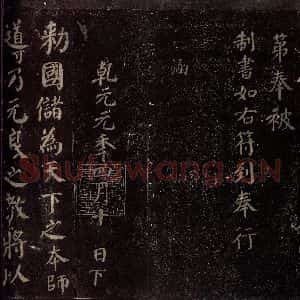 第奉被
制書如右符到奉行
涵
乾元元年四月十 日下
勅國儲為天下之本師
導乃元良之教將以
Shufawang.CN